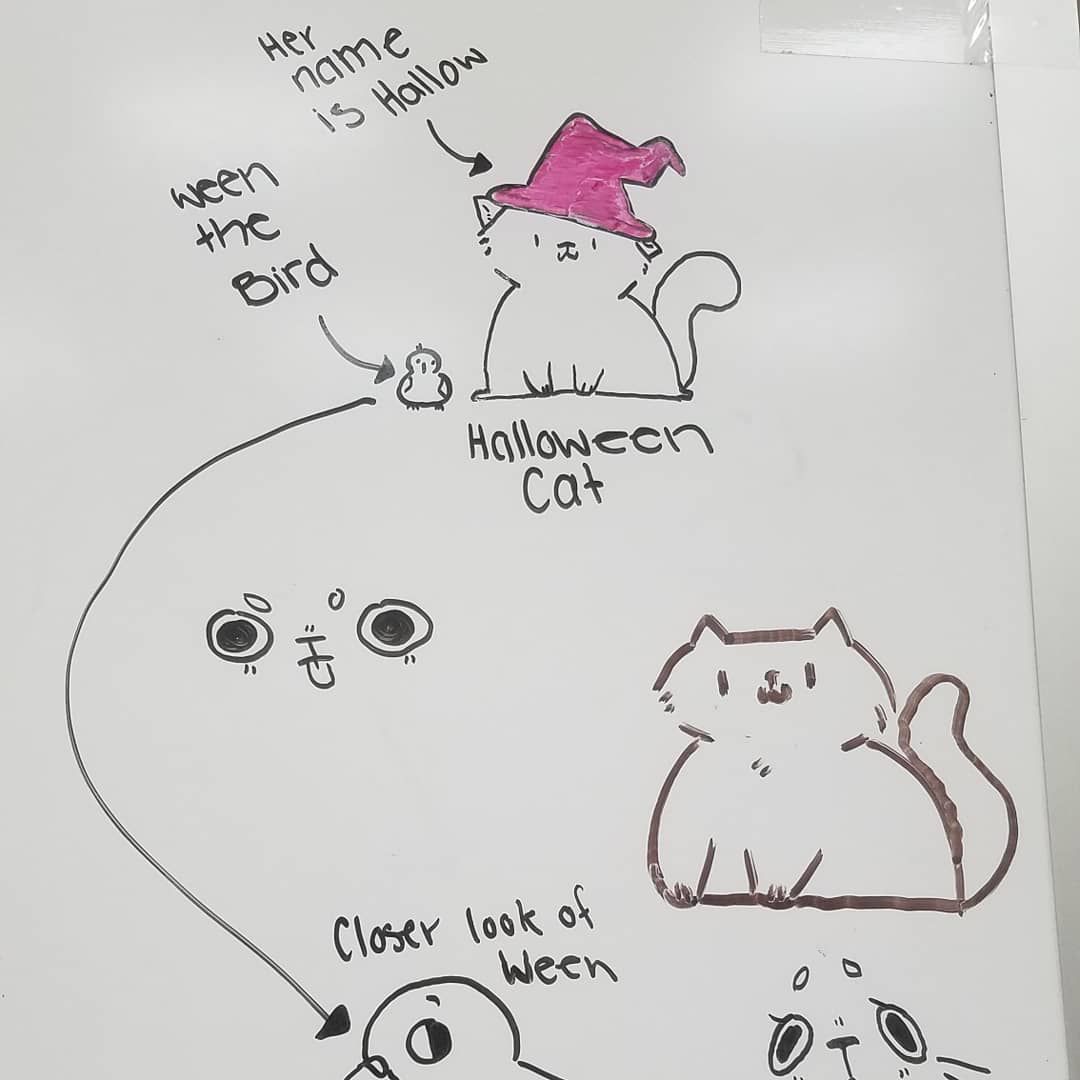 Her
name
is Hallow
ween
the
Bird
Halloween
Cat
Closer look of
Ween